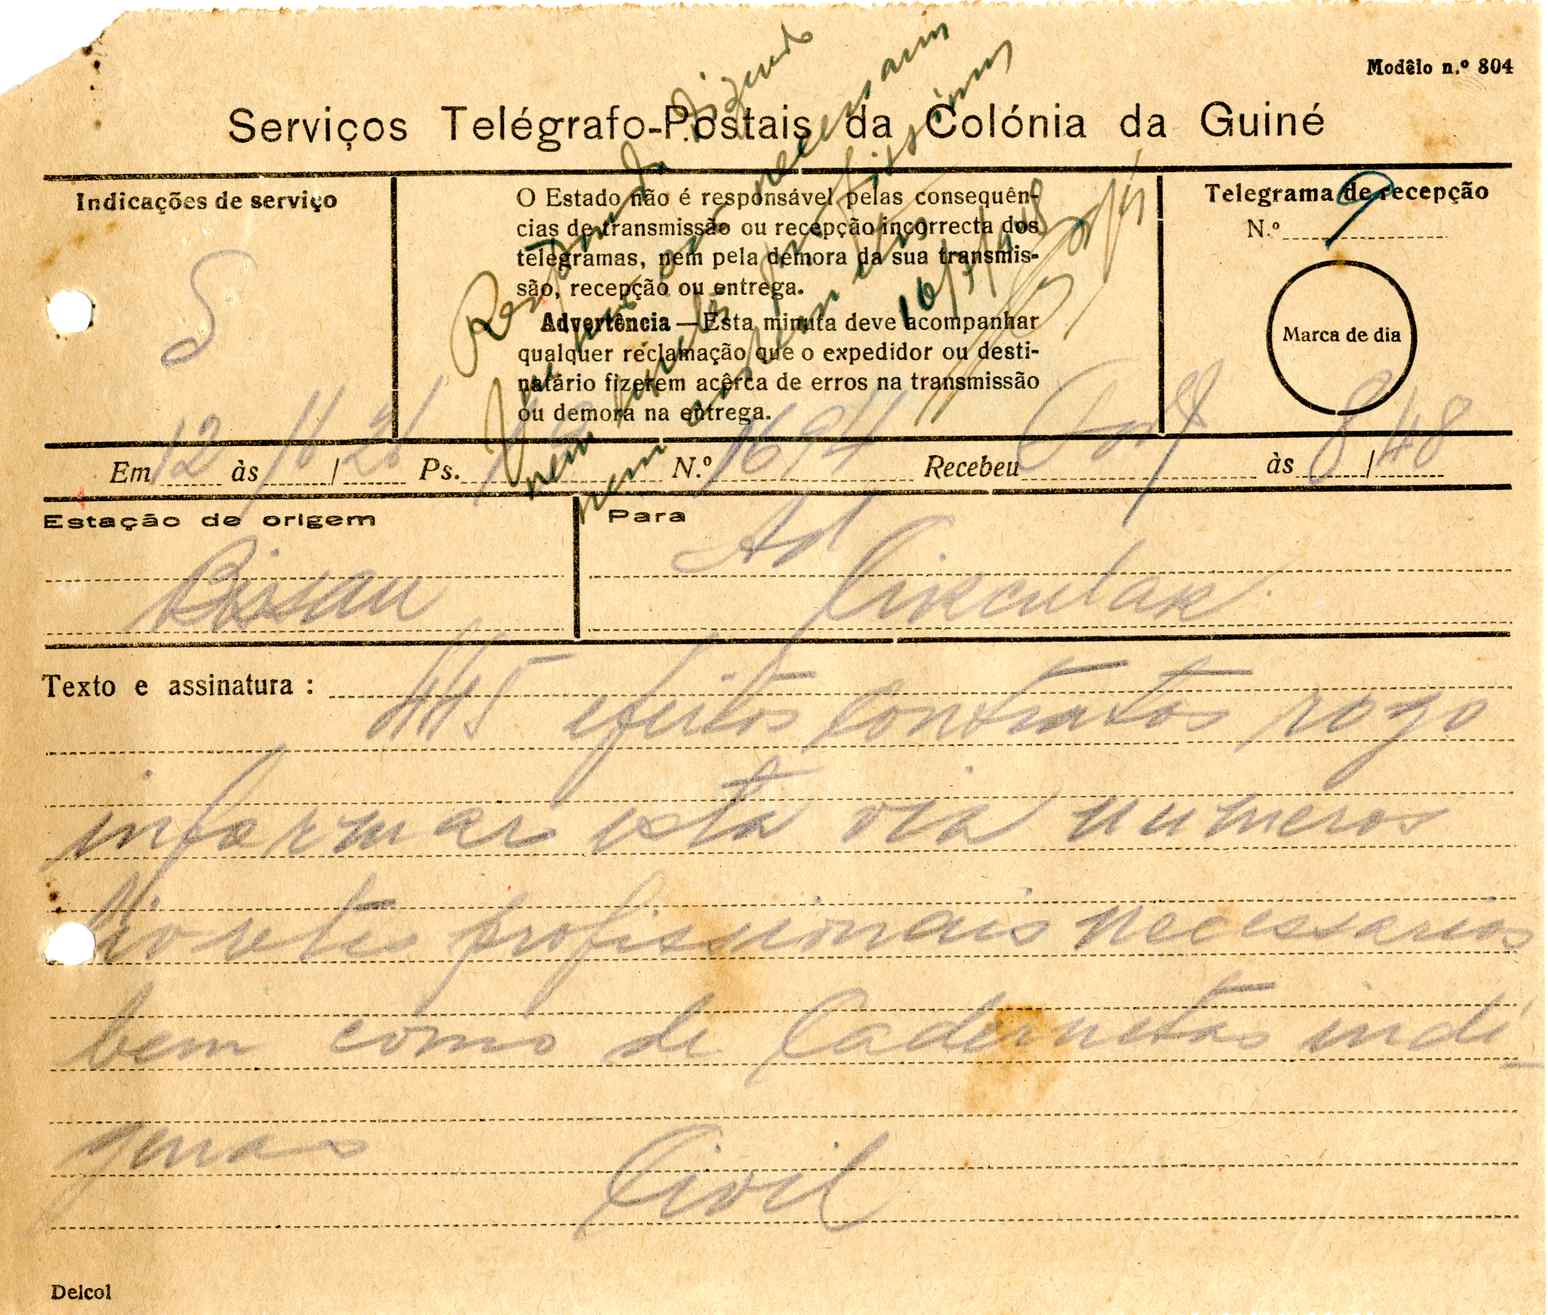 Modêlo n.º 804
Serviços Telégrafo-Postais da Colónia da Guiné
Indicações de serviço
S
O Estado não é responsável pelas consequên-
cias de transmissão ou recepção incorrecta dos
telegramas, nem pela demora da sua transmis-
são, recepção ou entrega.
Advertência—Esta minuta deve acompanhar
qualquer reclamação que o expedidor ou desti-
natário fizerem acêrca de erros na transmissão
ou demora na entrega.
Telegrama de recepção
N.º 9
Marca de dia
Respondido dizendo
que não necessario
nem
nem
16/3/948
Em 12 às 16/21 Ps. 19 N.º 1694 Recebeu às 8/48
Estação de origem
Bissau
Para
Ad
Circular
Texto e assinatura:
445 efeitos contratos rogo
informar esta via numeros
livretes profissionais necessarios
bem como de Cadernetas indi-
genas
Civil
Delcol